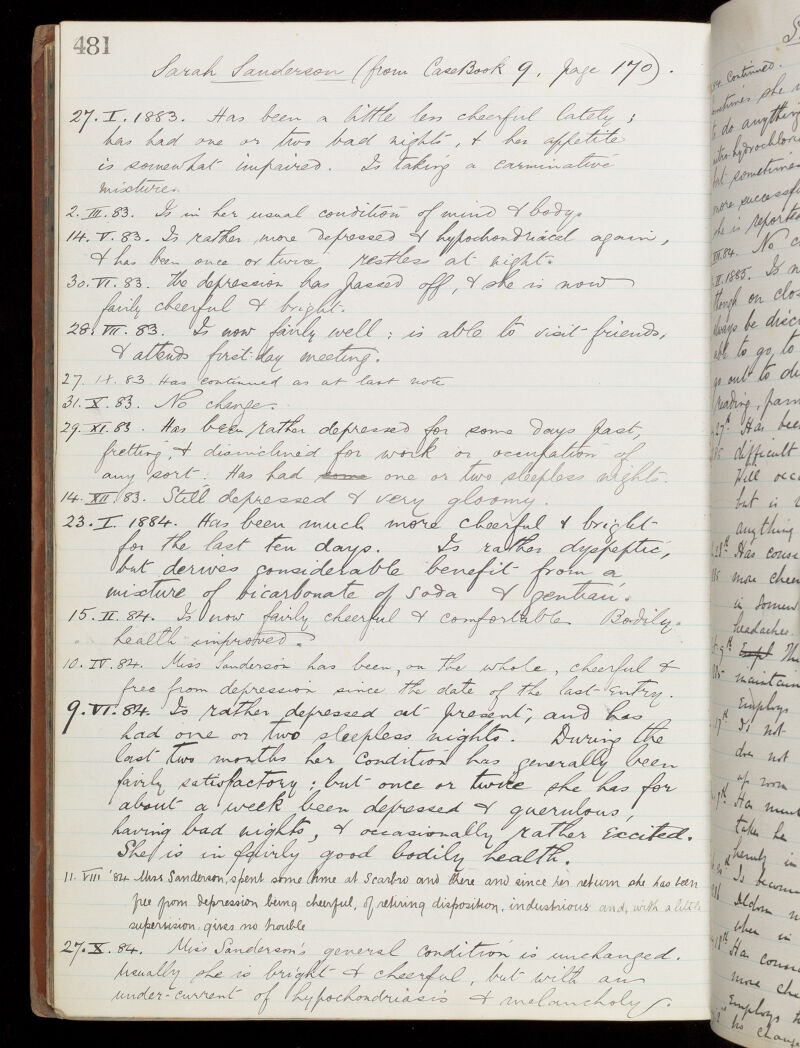 481
Sarah Sanderson (from CaseBook 9, page 170).
27. I. 1883. Has been a little less cheerful lately;
has had one or two bad nights, & her appetite
is somewhat impaired. Is taking a carminative
mixture.
2. III. 83. Is in her usual condition of mind & body.
14. V. 83. Is rather more depressed & hypochondriacal again,
& has been once or twice restless at night.
30. VI. 83. The depression has passed off, & she is now
fairly cheerful & bright.
28. VII. 83. Is now fairly well: is able to visit friends,
& attends first-day meeting.
27. IX. 83 Has continued as at last note
31. X. 83. No change.
29. XI. 83. Has been rather depressed for some days past,
fretting, & disinclined for work or occupation of
any sort. Has had some one or two sleepless nights.
14. XII 83. Still depressed & very gloomy.
23. I. 1884. Has been much more cheerful & bright
for the last ten days. Is rather dyspeptic,
but derives considerable benefit from a
mixture of bicarbonate of soda & gentian.
15. II. 84. Is now fairly cheerful & comfortable. Bodily
health improved.
10. IV. 84. Miss Sanderson has been, on the whole, cheerful &
free from depression since the date of the last entry.
9. VI. 84. Is rather depressed at present, and has
had one or two sleepless nights. During the
last two months her condition has generally been
fairly satisfactory: but once or twice she has for
about a week been depressed & querulous,
having bad nights, & occasionally rather excited.
She is in fairly good bodily health.
11. VIII '84 Miss Sanderson, spent some time at Scarbro and there and since her return she has been
free from depression being cheerful, of retiring disposition, industrious and, with a little
supervision gives no trouble
27. X. 84. Miss Sanderson's general condition is unchanged.
Usually she is bright & cheerful, but with an
under-current of hypochondriasis & melancholy.
continued.
she
do anything
but sometimes
more successful
she is reported
No
II. 1885. Is
though on
always be
to go, to
go out to
reading,
27th Has been
difficult
Will
but is
anything
28th Has
more cheer
in
headaches
9th Expl
maintain
Employs
17th Is not
does not
up room
Has
take her
in
Is becom
Seldom
when in
18th Has
more che
Employs
No change